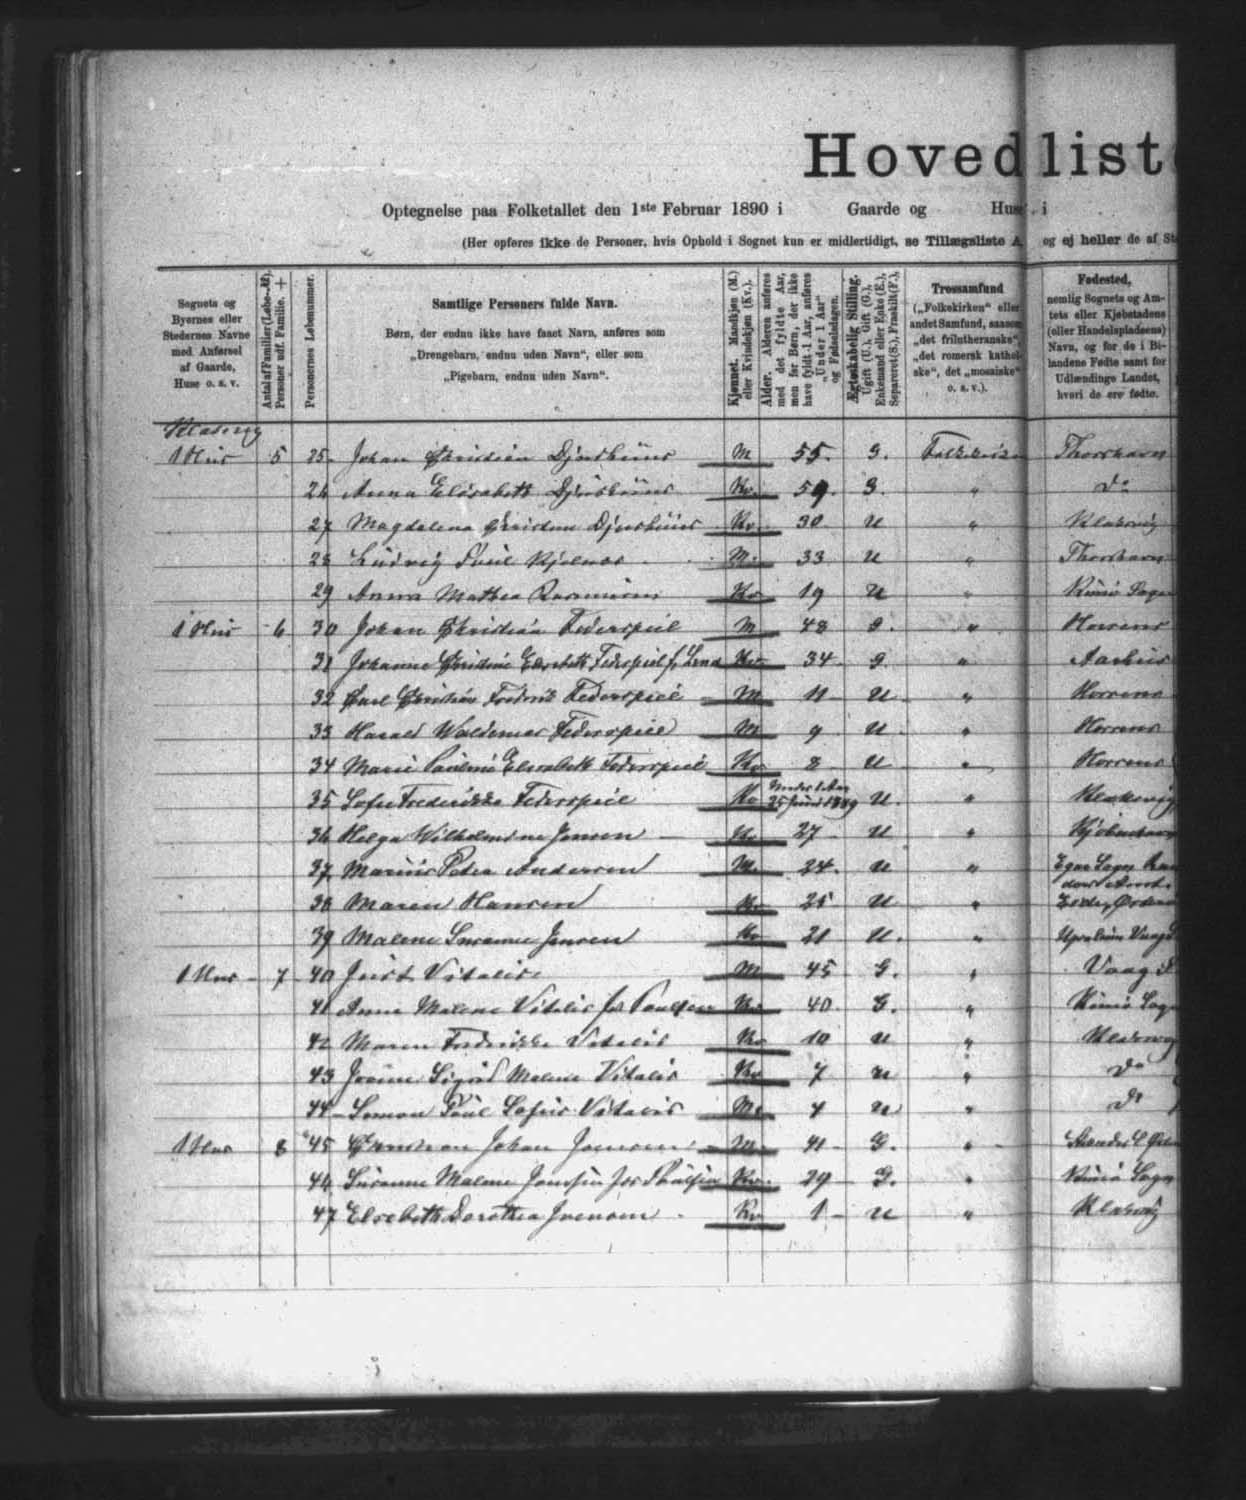 Hovedliste
Optegnelse paa Folketallet den 1ste Februar 1890 i Gaarde og Huse i
(Her opføres ikke de Personer, hvis Ophold i Sognet kun er midlertidigt, se Tillægsliste A, og ej heller de af
Sognets og Byernes eller Stedernes Navne med Anførsel af Gaarde, Huse o. s. v.
Antal af Familier (Løbe-№). Personer udf. Familie. +
Personernes Løbenummer.
Samtlige Personers fulde Navn.
Børn, der endnu ikke have faaet Navn, anføres som
„Drengebarn, endnu uden Navn“, eller som
„Pigebarn, endnu uden Navn“.
Kjønnet. Mandkjøn (M.) eller Kvindekjøn (Kv.).
Alder. Alderen anføres med det fyldte Aar, men for Børn, der ikke have fyldt 1 Aar, anføres „Under 1 Aar“ og Fødselsdagen.
Ægteskabelig Stilling. Ugift (U.), Gift (G.), Enkemand eller Enke (E.), Separeret (S.), Fraskilt (F.),
Trossamfund („Folkekirken“ eller andet Samfund, saasom „det frilutheranske“, „det romersk katholske“, det „mosaiske“ o. s. v.).
Fødested, nemlig Sognets og Amtets eller Kjøbstadens (eller Handelspladsens) Navn, og for de i Bilandene Fødte samt for Udlændinge Landet, hvori de ere fødte.
Klaksvig
1 Hus 5 25 Johan Christian Djurhuus M 55 G. Folkekirken Thorshavn
26 Anna Elisabeth Djurhuus Kv. 59 G. " Do
27 Magdalena Christine Djurhuus Kv 30 U " Klaksvig
28 Ludvig Poul M. 33 U " Thorshavn
29 Anna Mathea Rasmussen Kv 19 U " Kunø Sogn
1 Hus 6 30 Johan Christian Federspiel M 48 G. " Horsens
31 Johanne Christine Elisabeth Federspiel f. Kv 34 G " Aarhus
32 Carl Christian Fredrik Federspiel M 11 U " Horsens
33 Harald Waldemar Federspiel M 9 U " Horsens
34 Marie Pauline Elisabeth Federspiel Kv 8 U " Horsens
35 Sofie Frederikke Federspiel Kv Under 1 Aar 25 Juni 1889 U. " Klaksvig
36 Helga Wilhelmine Jensen Kv 27 U " Kjøbenhavn
37 Marius Peter Andersen M 24 U " Sogn Randers Amt
38 Maren Hansen Kv 25 U "
39 Malene Susanne Jensen Kv 21 U. "
1 Hus 7 40 Just Vitalis M 45 G. " Vaag
41 Anna Malene Vitalis f. Poulsen Kv 40 G. " Kunø Sogn
42 Maren Fredrikke Vitalis Kv 10 U " Klaksvig
43 Sigrid Malene Vitalis Kv 7 U " Do
44 Simon Poul Vitalis M. 4 U " Do
1 Hus 8 45 Johan Joensen M 41 G. "
46 Susanne Malene Joensen f. Poulsen Kv. 29 G. " Kunø Sogn
47 Elsebeth Dorothea Joensen Kv 1 U " Klaksvig